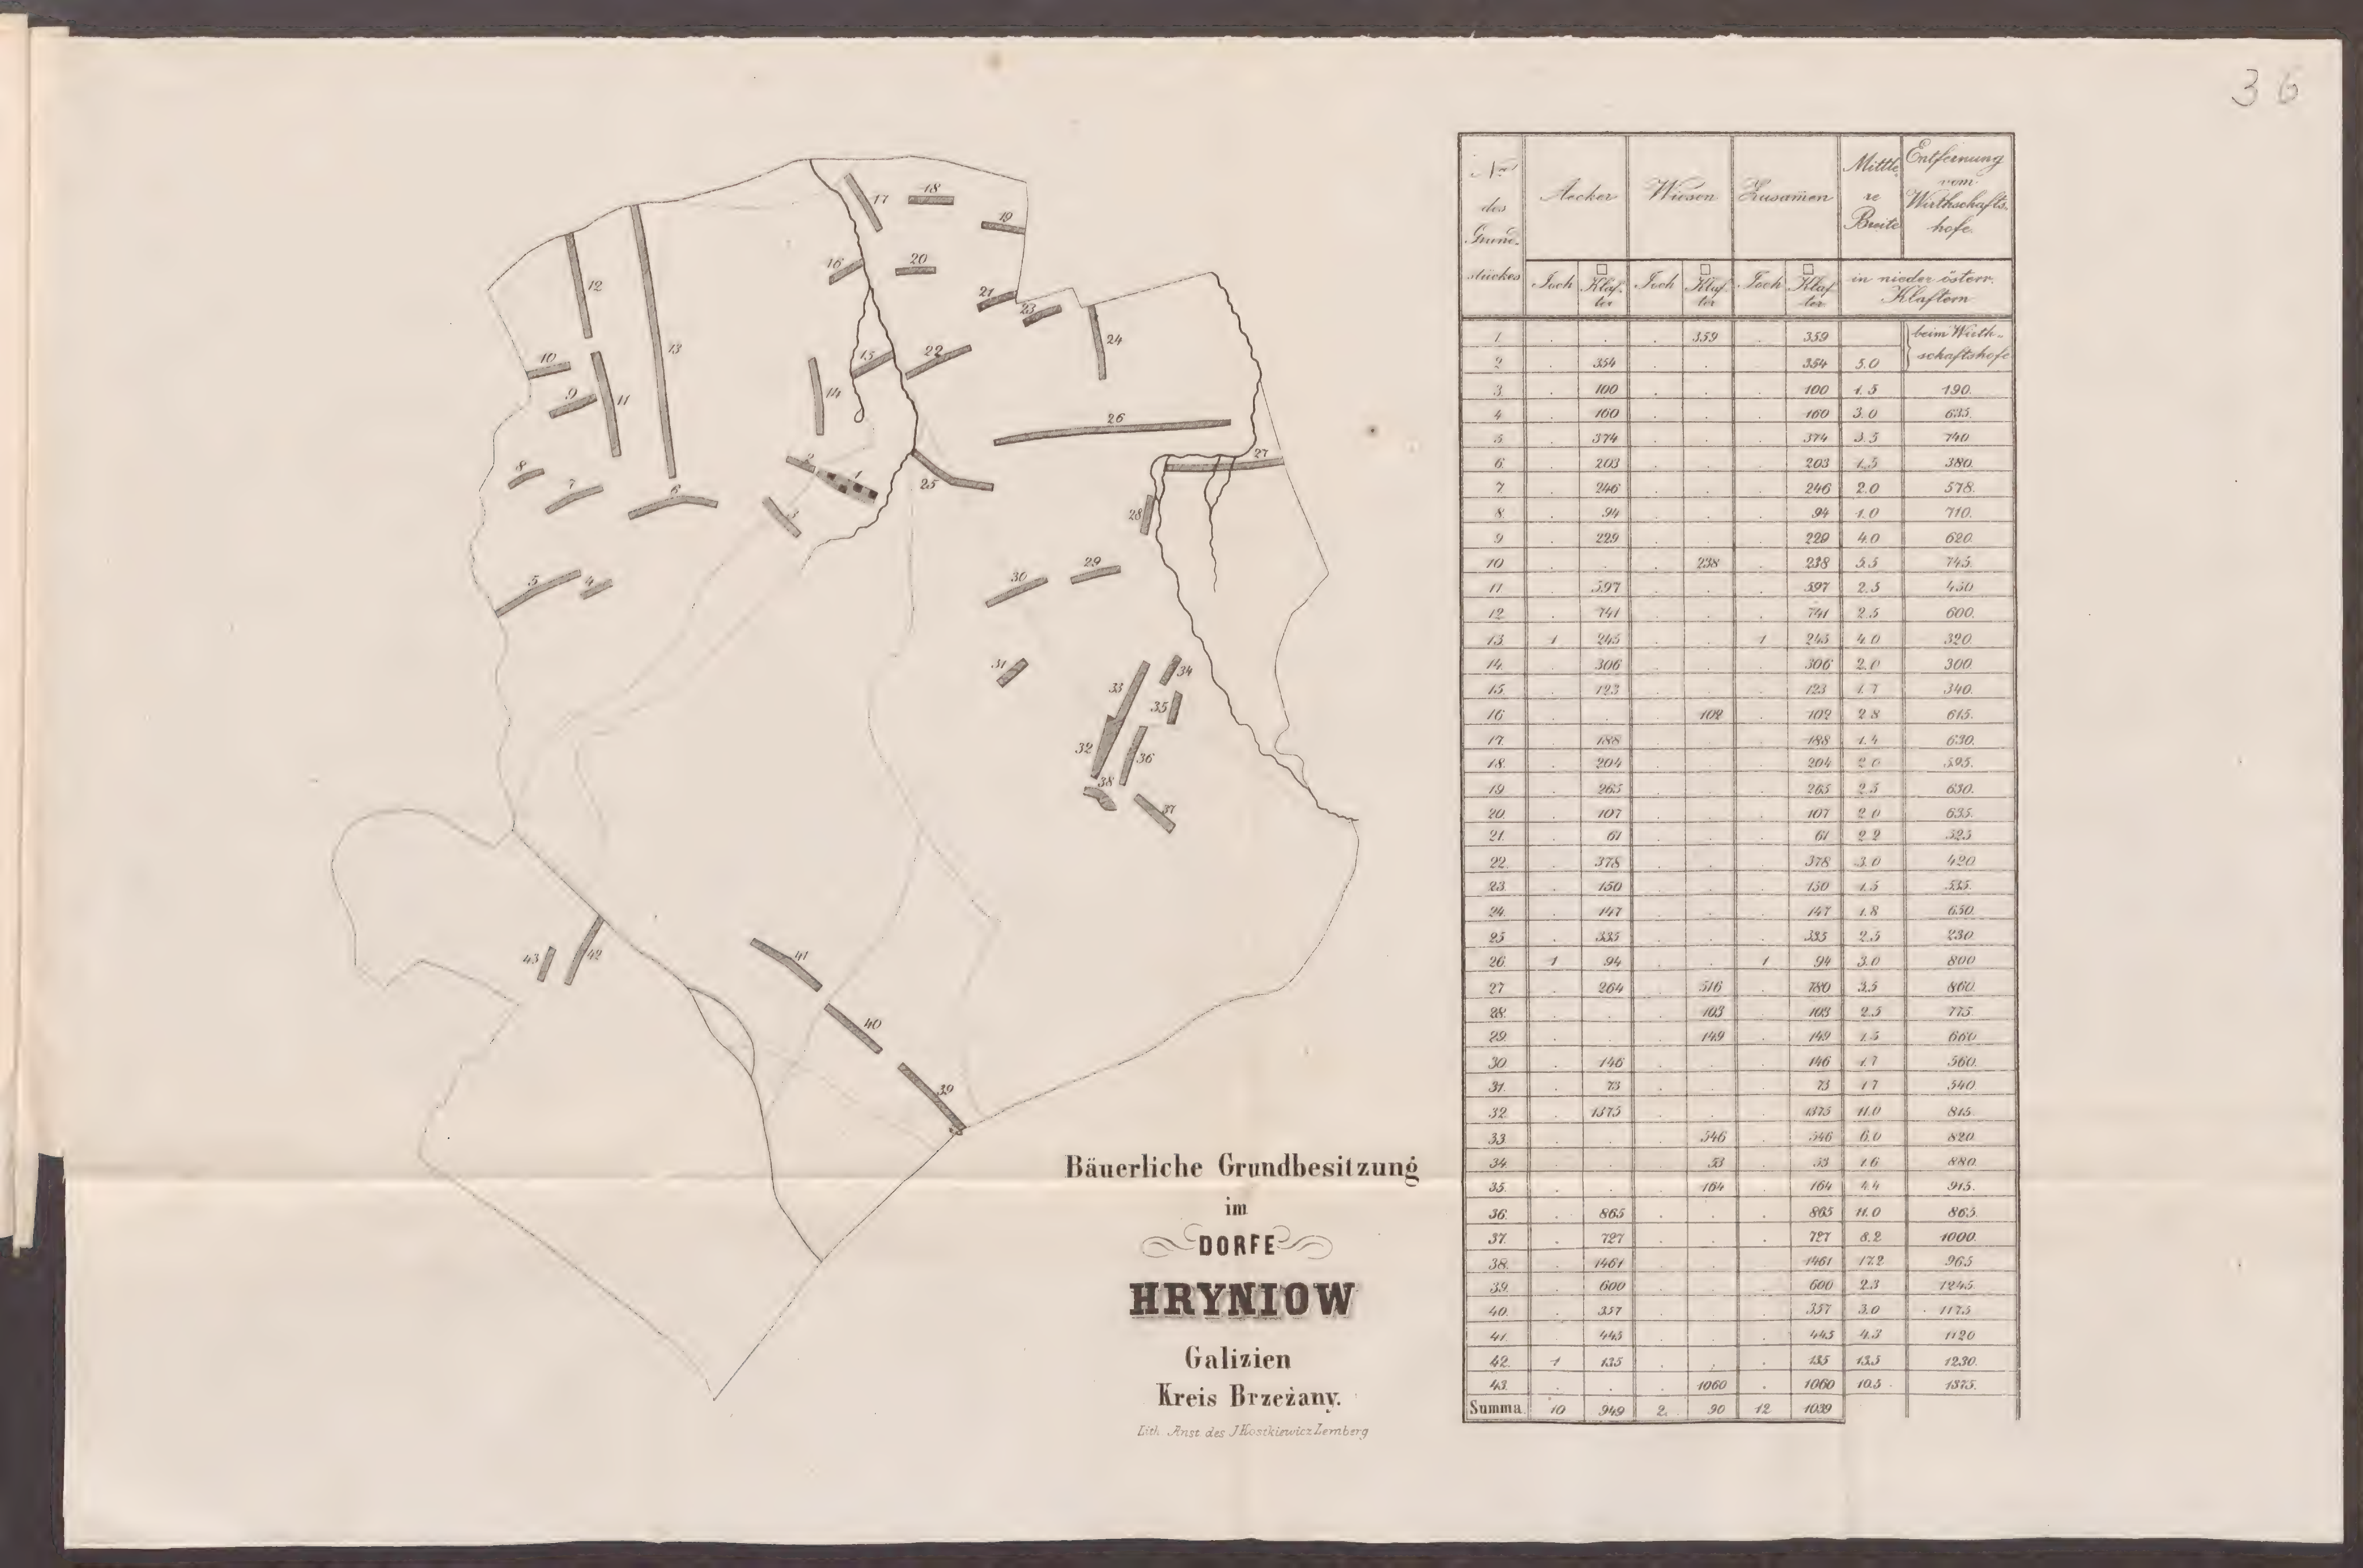 36
12
13
10
9
11
8
7
6
5
4
17
18
19
16
20
21
23
15
22
24
14
26
2
1
3
25
27
28
30
29
31
33
34
35
32
36
38
37
43
42
41
40
39
Bäuerliche Grundbesitzung
im
DORFE
HRYNIOW
Galizien
Kreis Brzeżany.
Lith. Anst. des J Kostkiewicz Lemberg
Nro des Grundstückes | Aecker | Wiesen | Zusam̄en | Mittlere Breite | Entfernung vom Wirthschaftshofe
Joch | □ Klafter | Joch | □ Klafter | Joch | □ Klafter | in nieder österr. Klaftern
1. . . . 359 . 359 beim Wirthschaftshofe
2 . 354 . . . 354 5.0
3. . 100 . . . 100 1.5 190.
4 . 160 . . . 160 3.0 635.
5 . 374 . . . 374 3.5 740
6. . 203 . . . 203 1.5 380.
7. . 246 . . . 246 2.0 578.
8. . 94 . . . 94 1.0 710.
9 . 229 . . . 229 4.0 620.
10 . . . 238 . 238 5.5 745.
11 . 597 . . . 597 2.5 450
12. . 741 . . . 741 2.5 600.
13. 1 245 . . 1 245 4.0 320
14. . 306 . . . 306 2.0 300.
15. . 123 . . . 123 1.7 340.
16 . . . 102 . 102 2.8 615.
17. . 188 . . . 188 1.4 630.
18. . 204 . . . 204 2.0 595.
19 . 265 . . . 265 2.5 630.
20. . 107 . . . 107 2.0 635.
21. . 61 . . . 61 2.2 525
22. . 378 . . . 378 3.0 420
23. . 150 . . . 150 1.5 535.
24. . 147 . . . 147 1.8 650.
25 . 335 . . . 335 2.5 230
26. 1 94 . . 1 94 3.0 800
27 . 264 . 516 . 780 3.5 860.
28. . . . 103 . 103 2.5 775.
29. . . . 149 . 149 1.5 660
30. . 146 . . . 146 1.7 560.
31. . 73 . . . 73 1.7 540
32. . 1375 . . . 1375 11.0 815.
33 . . . 546 . 546 6.0 820.
34. . . . 53 . 53 1.6 880.
35. . . . 164 . 164 4.4 915.
36. . 865 . . . 865 11.0 865.
37. . 727 . . . 727 8.2 1000.
38. . 1461 . . . 1461 17.2 965
39. . 600 . . . 600 2.3 1245.
40. . 357 . . . 357 3.0 1175
41. . 445 . . . 445 4.3 1120
42. 1 135 . . . 135 13.5 1230.
43. . . . 1060 . 1060 10.5 1375.
Summa 10 949 2. 90 12 1039